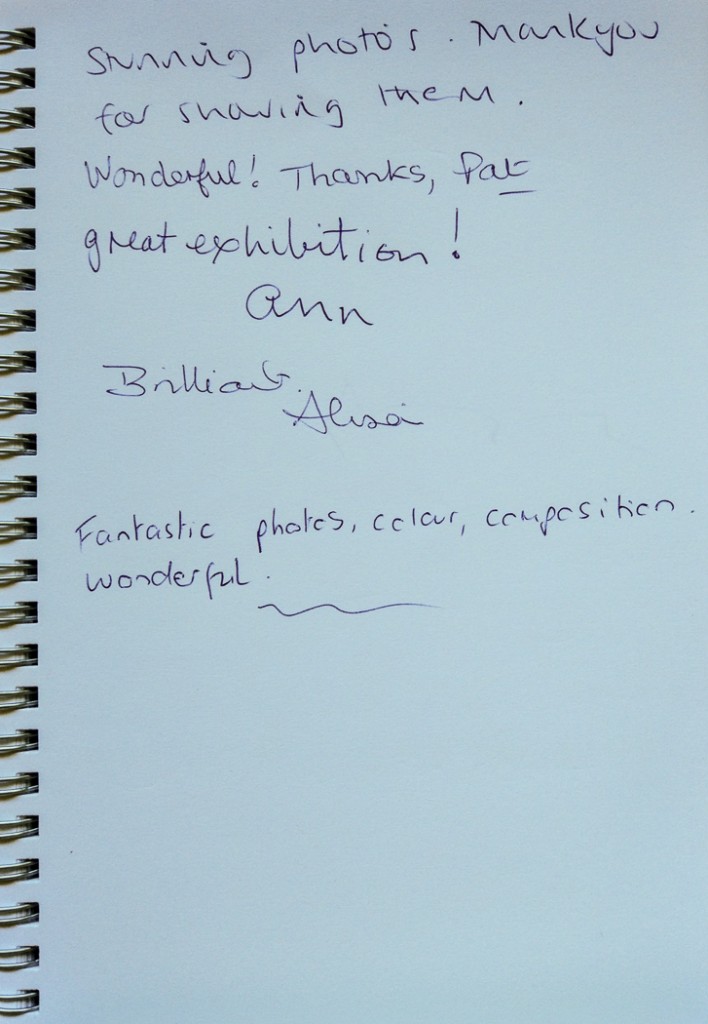 Stunning photo's. Thankyou
for sharing them.
Wonderful! Thanks, Pat
great exhibition!
Ann
Brilliant.
Fantastic photos, colour, composition.
wonderful.